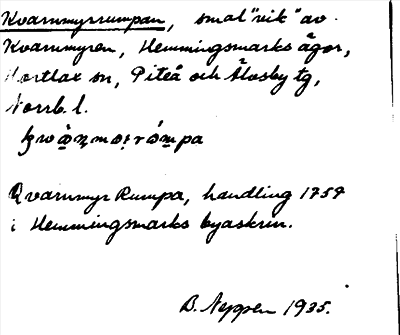 Kvarnmyrrumpan, smal "vik" av
Kvarnmyren, Hemmingsmarks ägor,
Hortlax sn, Piteå och Älvsby tg,
Norrb. l.
Qvarnmyr Rumpa, handling 1757
i Hemmingsmarks byaskrin.
B. Nyppen 1935.